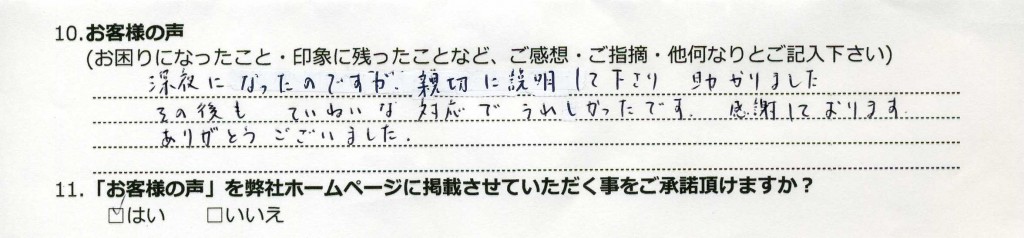 10.お客様の声
(お困りになったこと・印象に残ったことなど、ご感想・ご指摘・他何なりとご記入下さい)
深夜に なったのですが、親切に説明して下さり 助かりました
その後も ていねいな 対応で うれしかったです。 感謝しております。
ありがとうございました。
11. 「お客様の声」を弊社ホームページに掲載させていただく事をご承諾頂けますか?
☑はい □いいえ